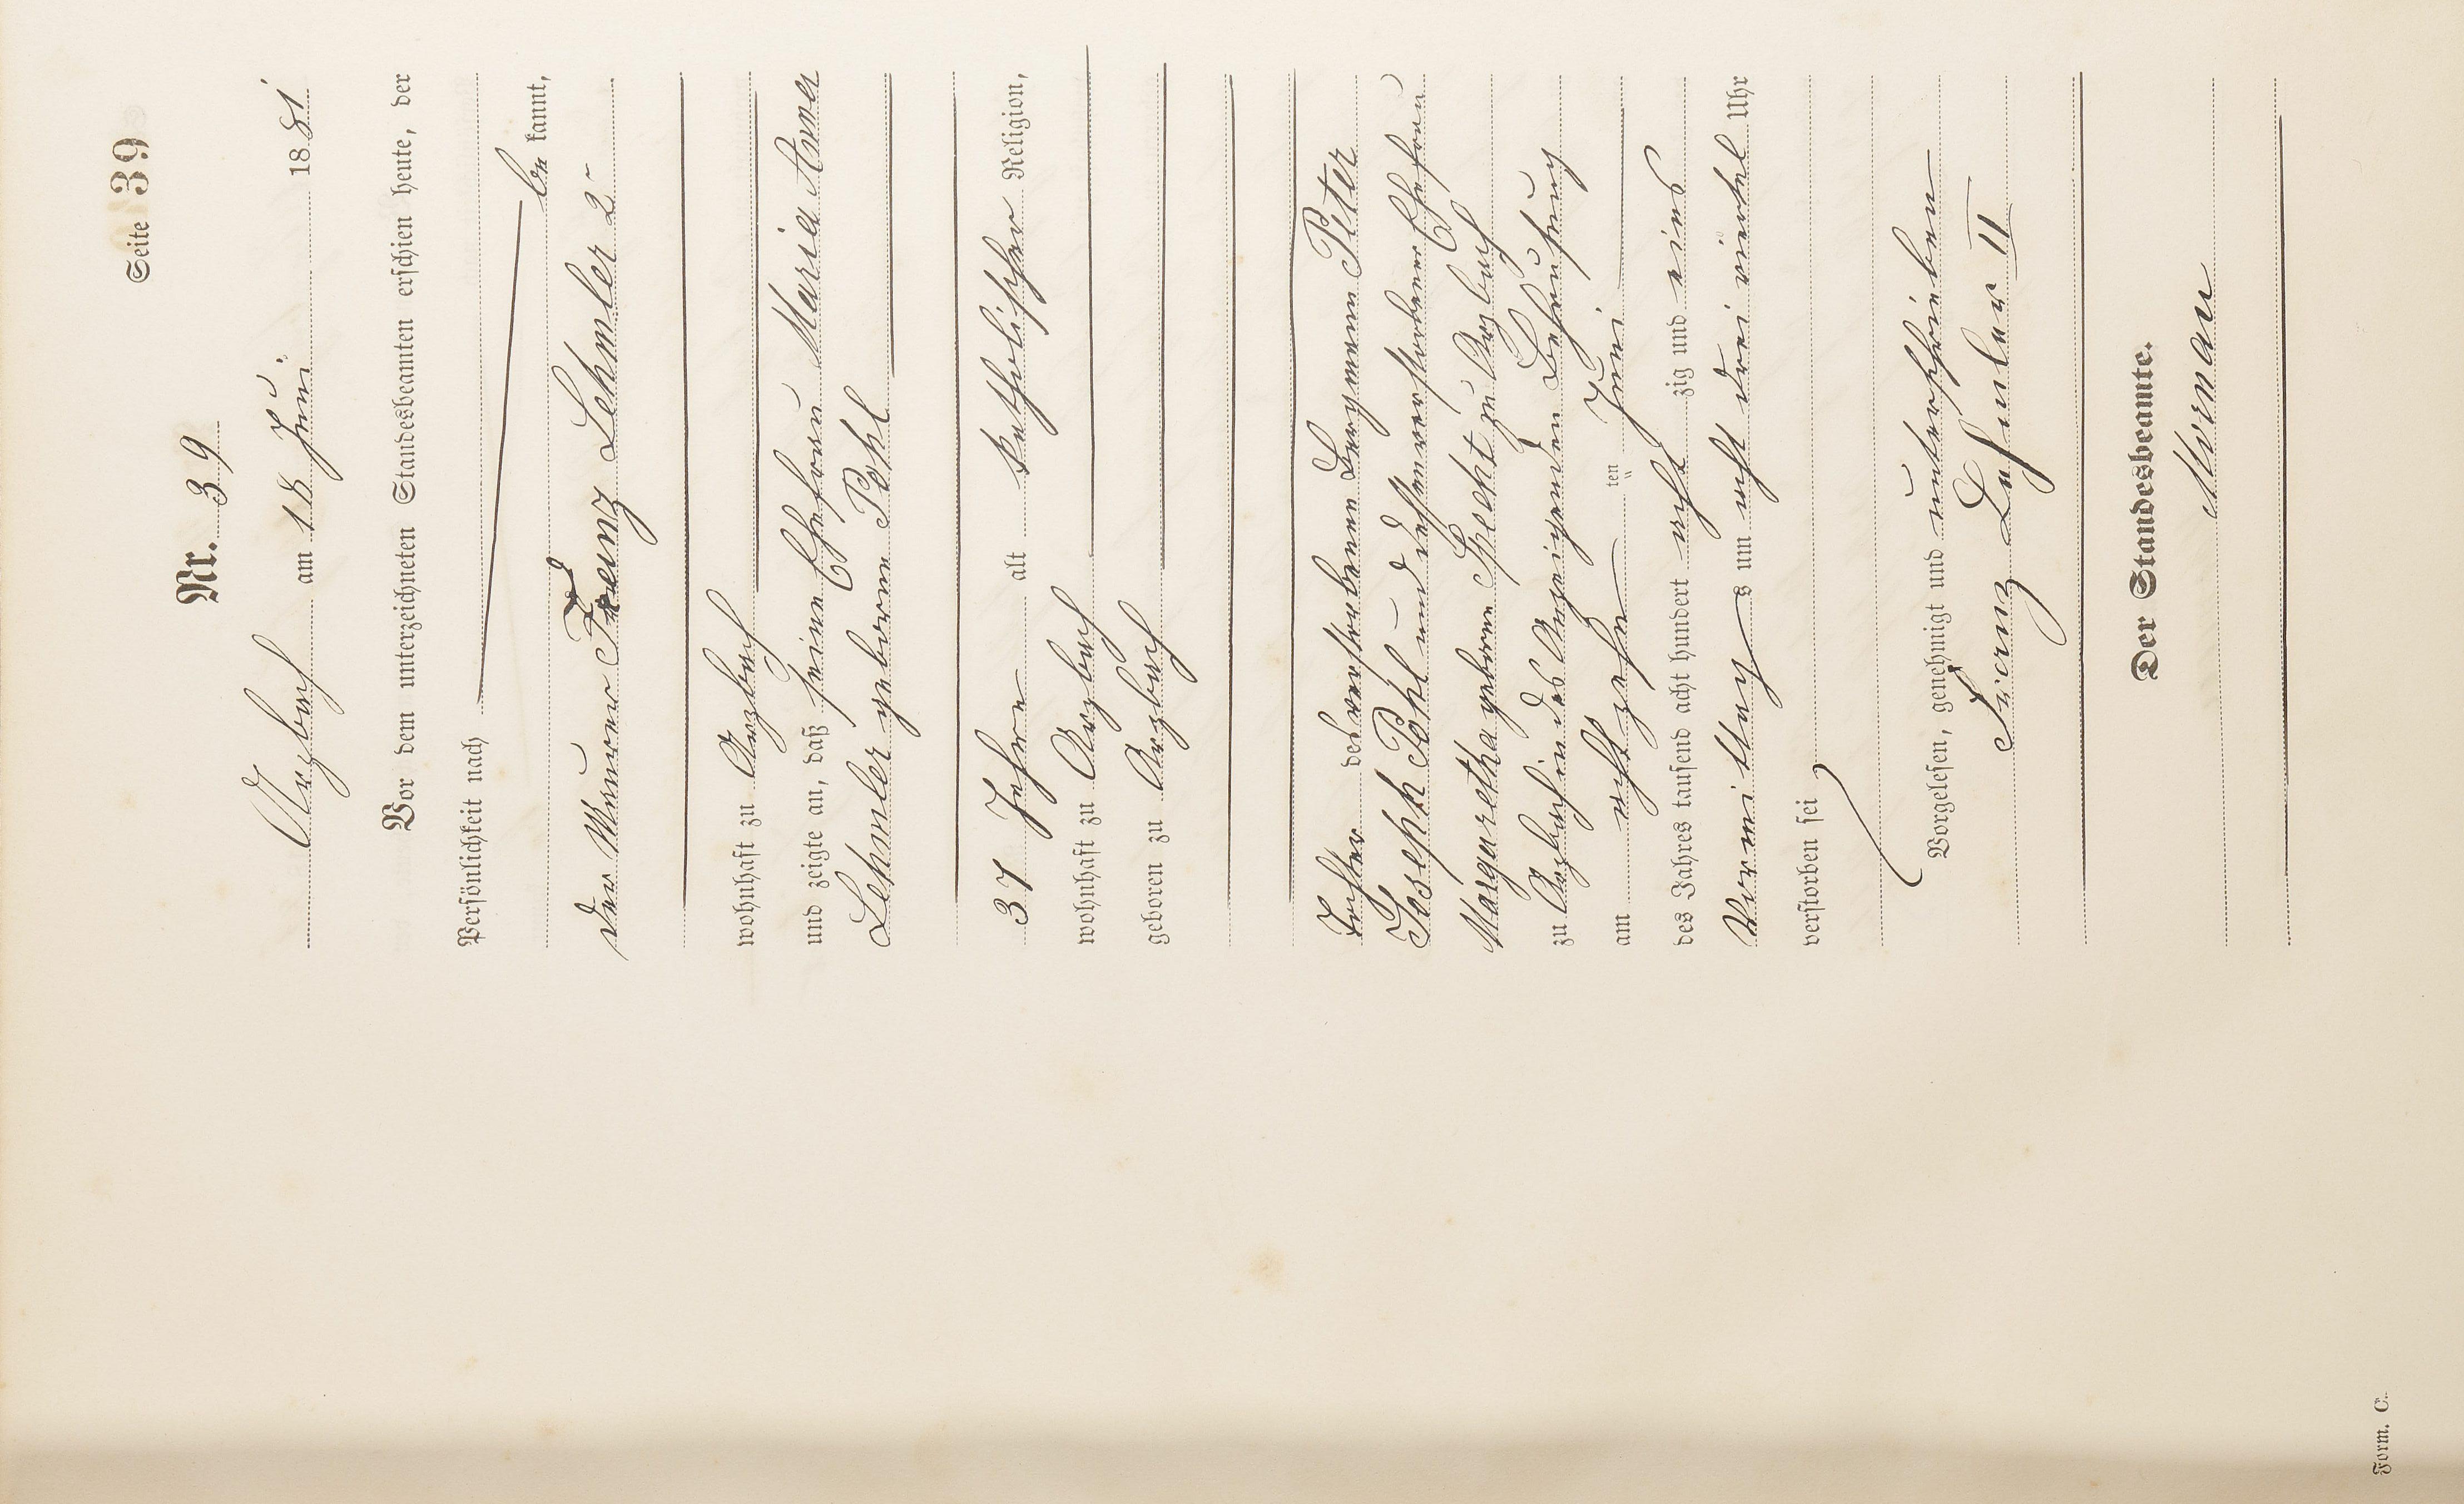 Seite 39
Nr. 39
Arzbach am 18 Juni 1881
Vor dem unterzeichneten Standesbeamten erschien heute, der
Persönlichkeit nach
be kannt,
der Maurer Franz Lehmler 2r
wohnhaft zu Arzbach
und zeigte an, daß seine Ehefrau Maria Anna
Lehmler geborene Pöhl
37 Jahre alt katholischer Religion,
wohnhaft zu Arzbach
geboren zu Arzbach
Tochter des verstorbenen Bergmann Peter
Joseph Pöhl und dessen verstorbener Ehefrau
Margaretha geborene Specht zu Arzbach
zu Arzbach in des Anzeigenden Behausung
am achtzehn ten Juni
des Jahres tausend acht hundert acht zig und eins
Vormittags um acht drei viertel Uhr
verstorben sei
Vorgelesen, genehmigt und unterschrieben
Franz Lehmler II
Der Standesbeamte.
Form. C.